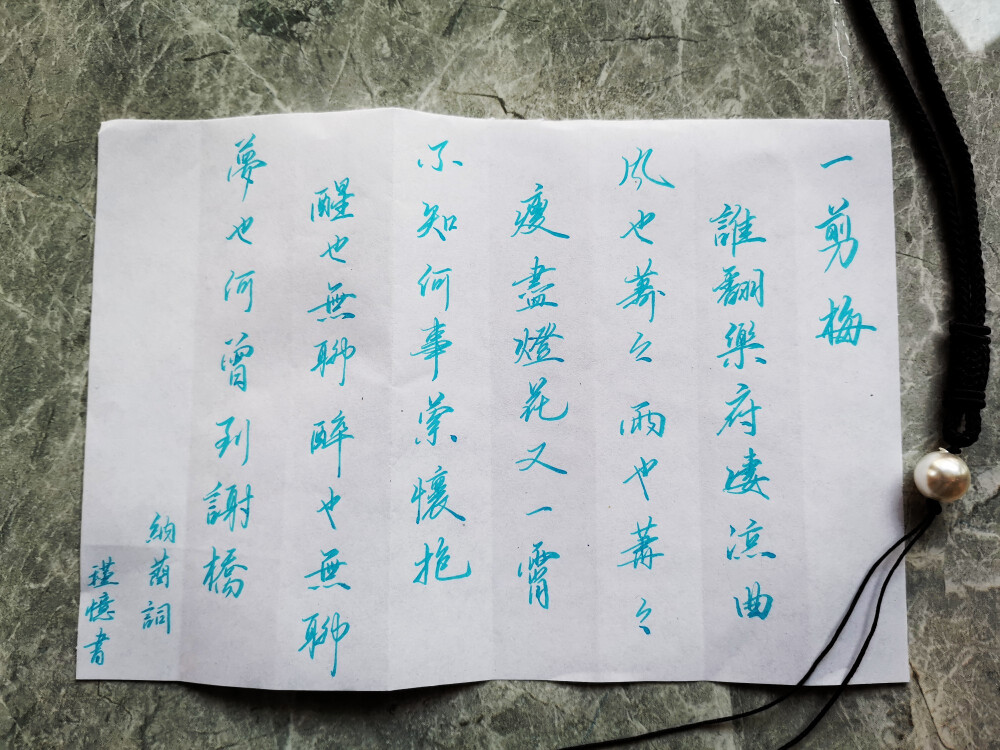 一剪梅
誰翻樂府淒涼曲
風也蕭々雨也蕭々
瘦盡燈花又一霄
不知何事縈懷抱
醒也無聊醉也無聊
夢也何曾到謝橋
納蘭詞
憶書